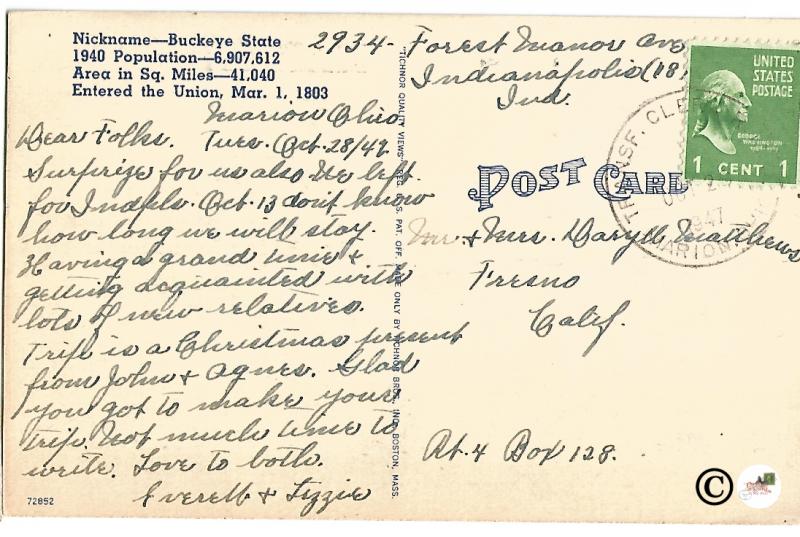 Nickname—Buckeye State
1940 Population—6,907,612
Area in Sq. Miles—41,040
Entered the Union, Mar. 1, 1803
Marion Ohio.
Dear Folks. Tues. Oct. 28/47
Surprize for us also We left
for Indpls. Oct. 13 don't know
how long we will stay.
Having a grand time &
getting acquainted with
lots of new relatives.
Trip is a Christmas present
from John & Agnes. Glad
you got to make your
trip. Not much time to
write. Love to both.
Everett & Lizzie
72852
"TICHNOR QUALITY VIEWS" REG. U.S. PAT. OFF. MADE ONLY BY TICHNOR BROS., INC., BOSTON, MASS.
2934- Forest Manor Ave
Indianapolis (18)
Ind.
UNITED
STATES
POSTAGE
GEORGE
WASHINGTON
1 CENT 1
TRANSF. CLERK
1947
MARION
POST CARD
Mr. & Mrs. Daryll Matthews
Fresno
Calif.
Rt. 4 Box 128.
©